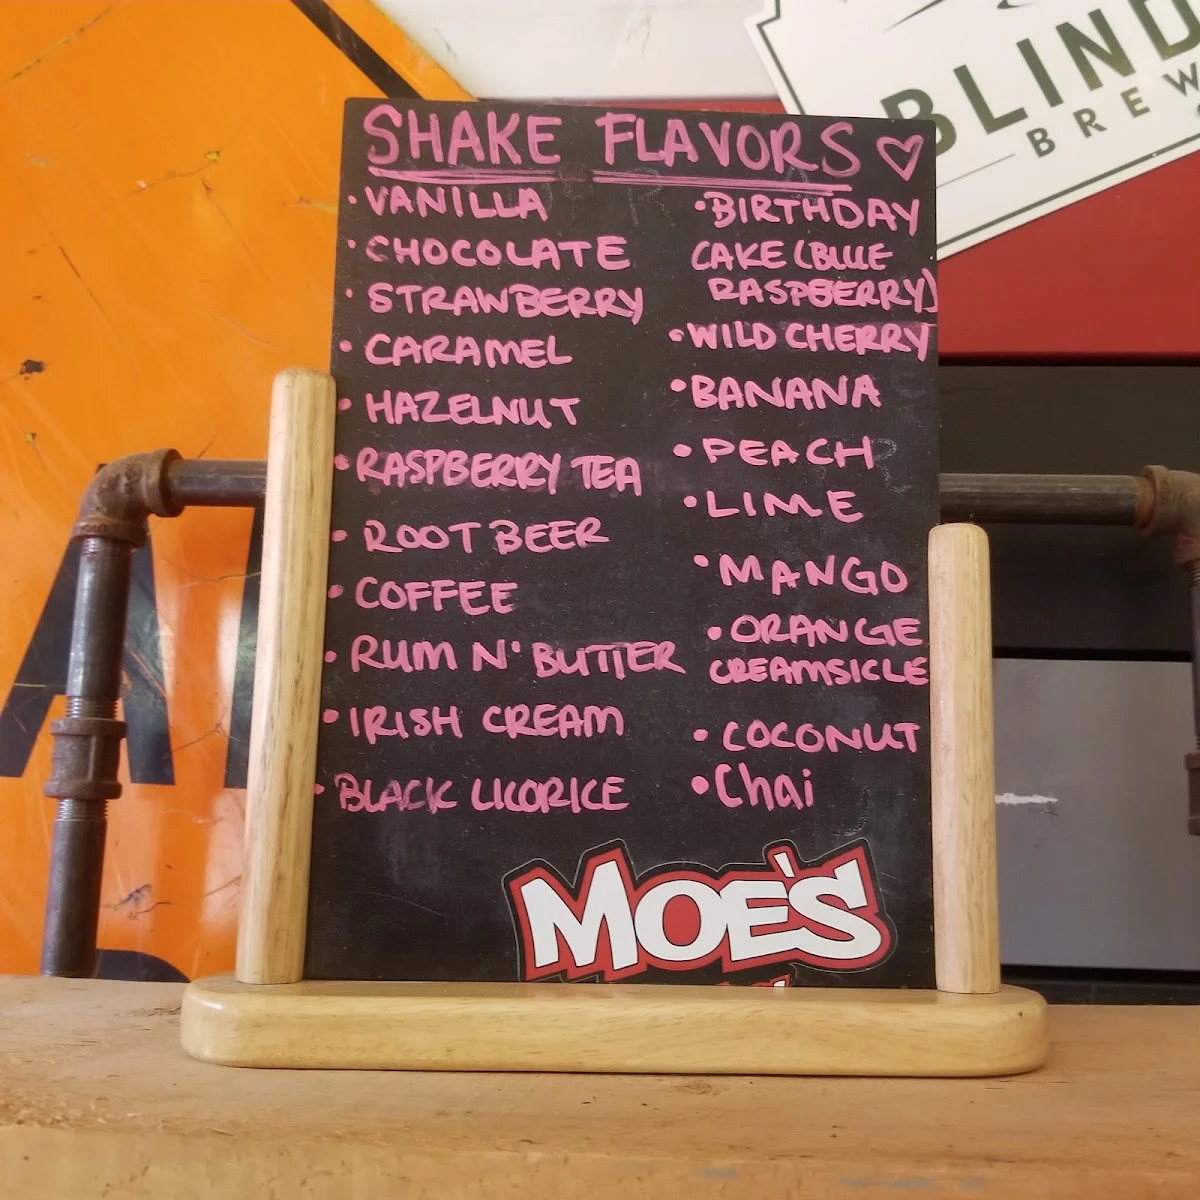 SHAKE FLAVORS ♡
• VANILLA
• CHOCOLATE
• STRAWBERRY
• CARAMEL
• HAZELNUT
• RASPBERRY TEA
• ROOT BEER
• COFFEE
• RUM N' BUTTER
• IRISH CREAM
• BLACK LICORICE
• BIRTHDAY
CAKE (BLUE
RASPBERRY)
• WILD CHERRY
• BANANA
• PEACH
• LIME
• MANGO
• ORANGE
CREAMSICLE
• COCONUT
• Chai
MOE'S
BLIND
BREW